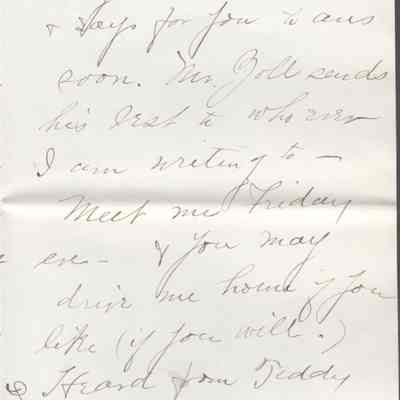 & Says for you to ans
soon. Mr. Zoll sends
his best to who ever
I am writing to —
Meet me Friday
eve — & you may
drive me home if you
like (if you will.)
& Heard from Teddy